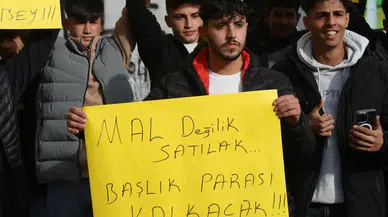 BEY...!!!
MAL Değilik
SATILAK...
BAŞLIK PARASI
KALKACAK!!!